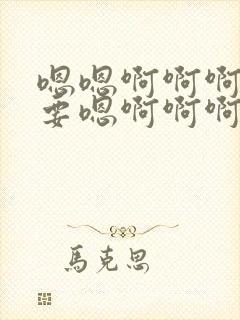 嗯嗯啊啊啊
要嗯啊啊啊
馬克思